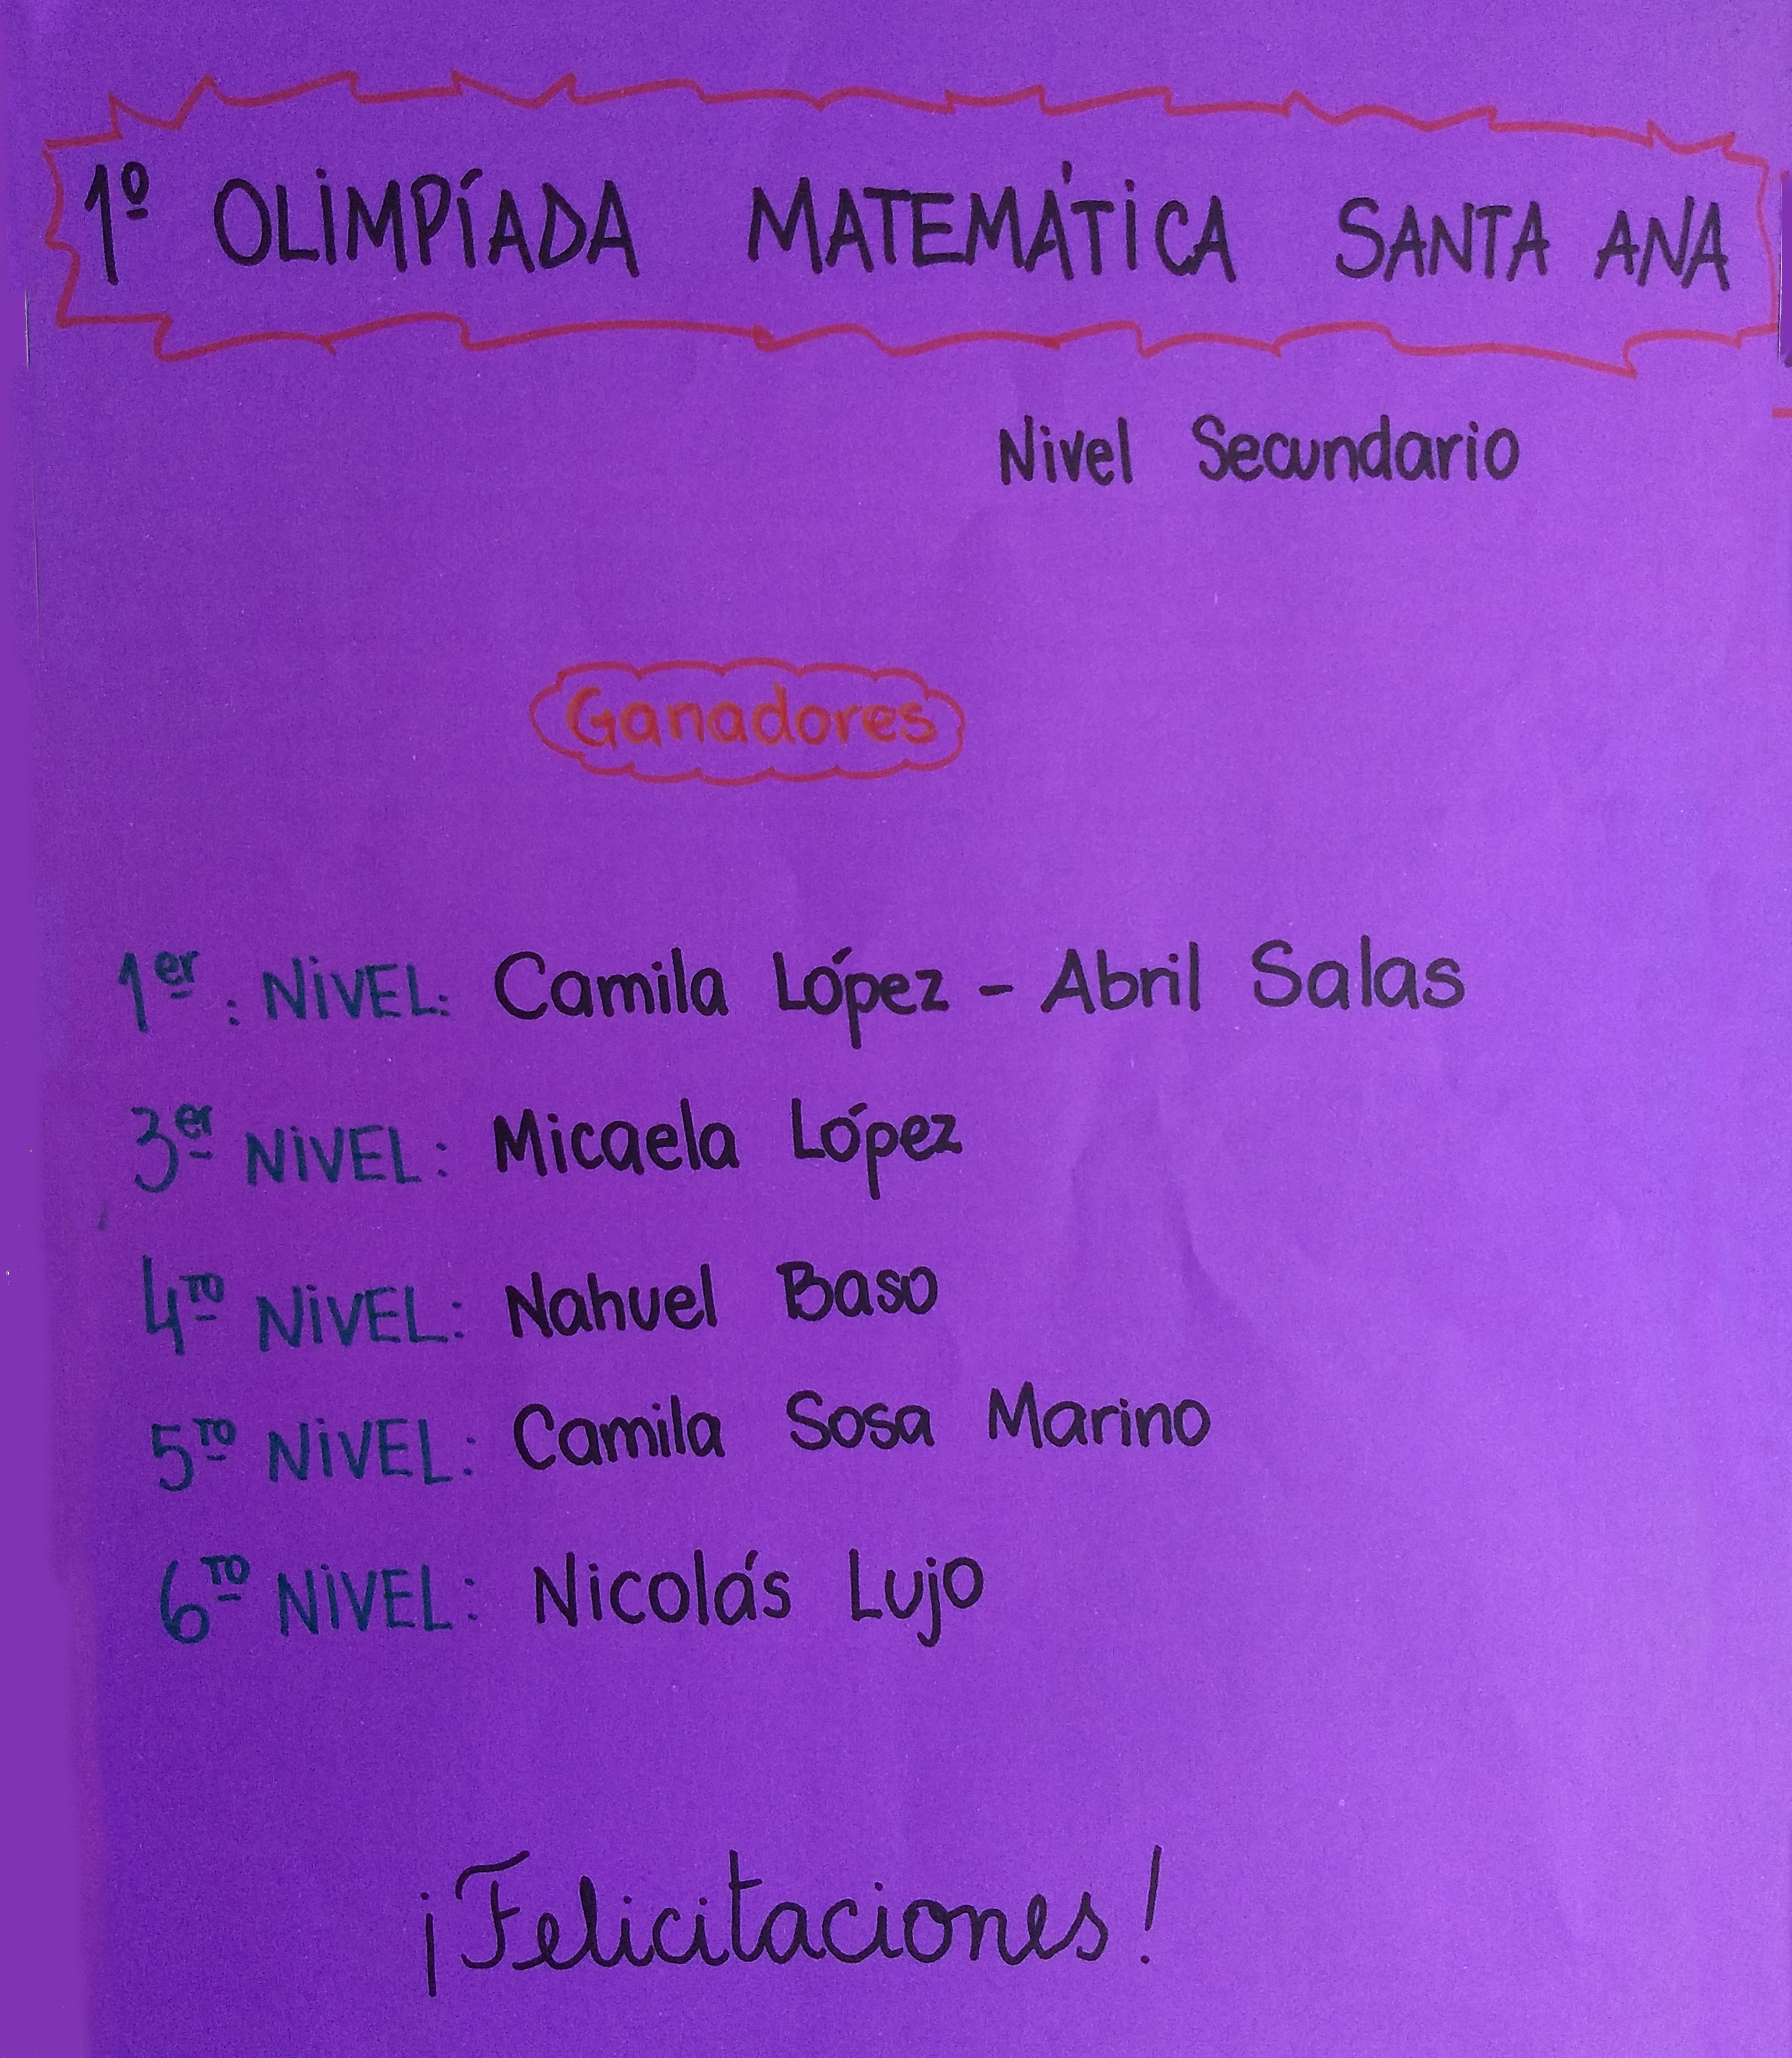 1º OLIMPÍADA MATEMÁTICA SANTA ANA
Nivel Secundario
Ganadores
1er : NIVEL: Camila López - Abril Salas
3er NIVEL: Micaela López
4TO NIVEL: Nahuel Baso
5TO NIVEL: Camila Sosa Marino
6TO NIVEL: Nicolás Lujo
¡Felicitaciones!